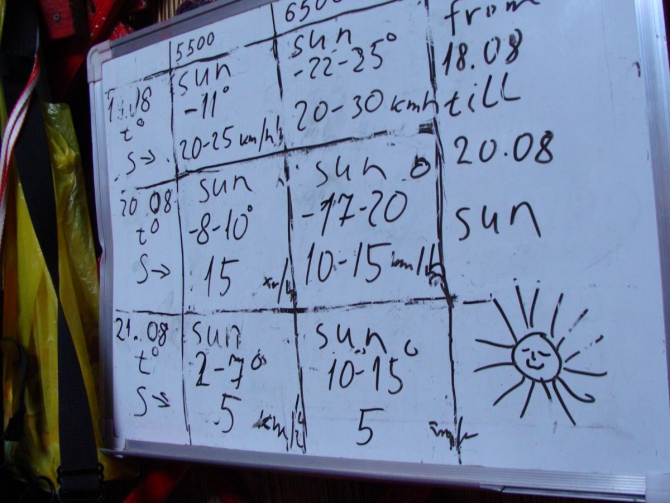 5500 6500
sun sun
19.08 -11° -22-25°
t°
S→ 20-25 km/h 20-30 kmh
20.08 sun sun
t° -8-10° -17-20°
S→ 15 10-15 km/h
21.08 sun sun
t° 2-7° 10-15°
S→ 5 km/h 5
from
18.08
till
20.08
sun